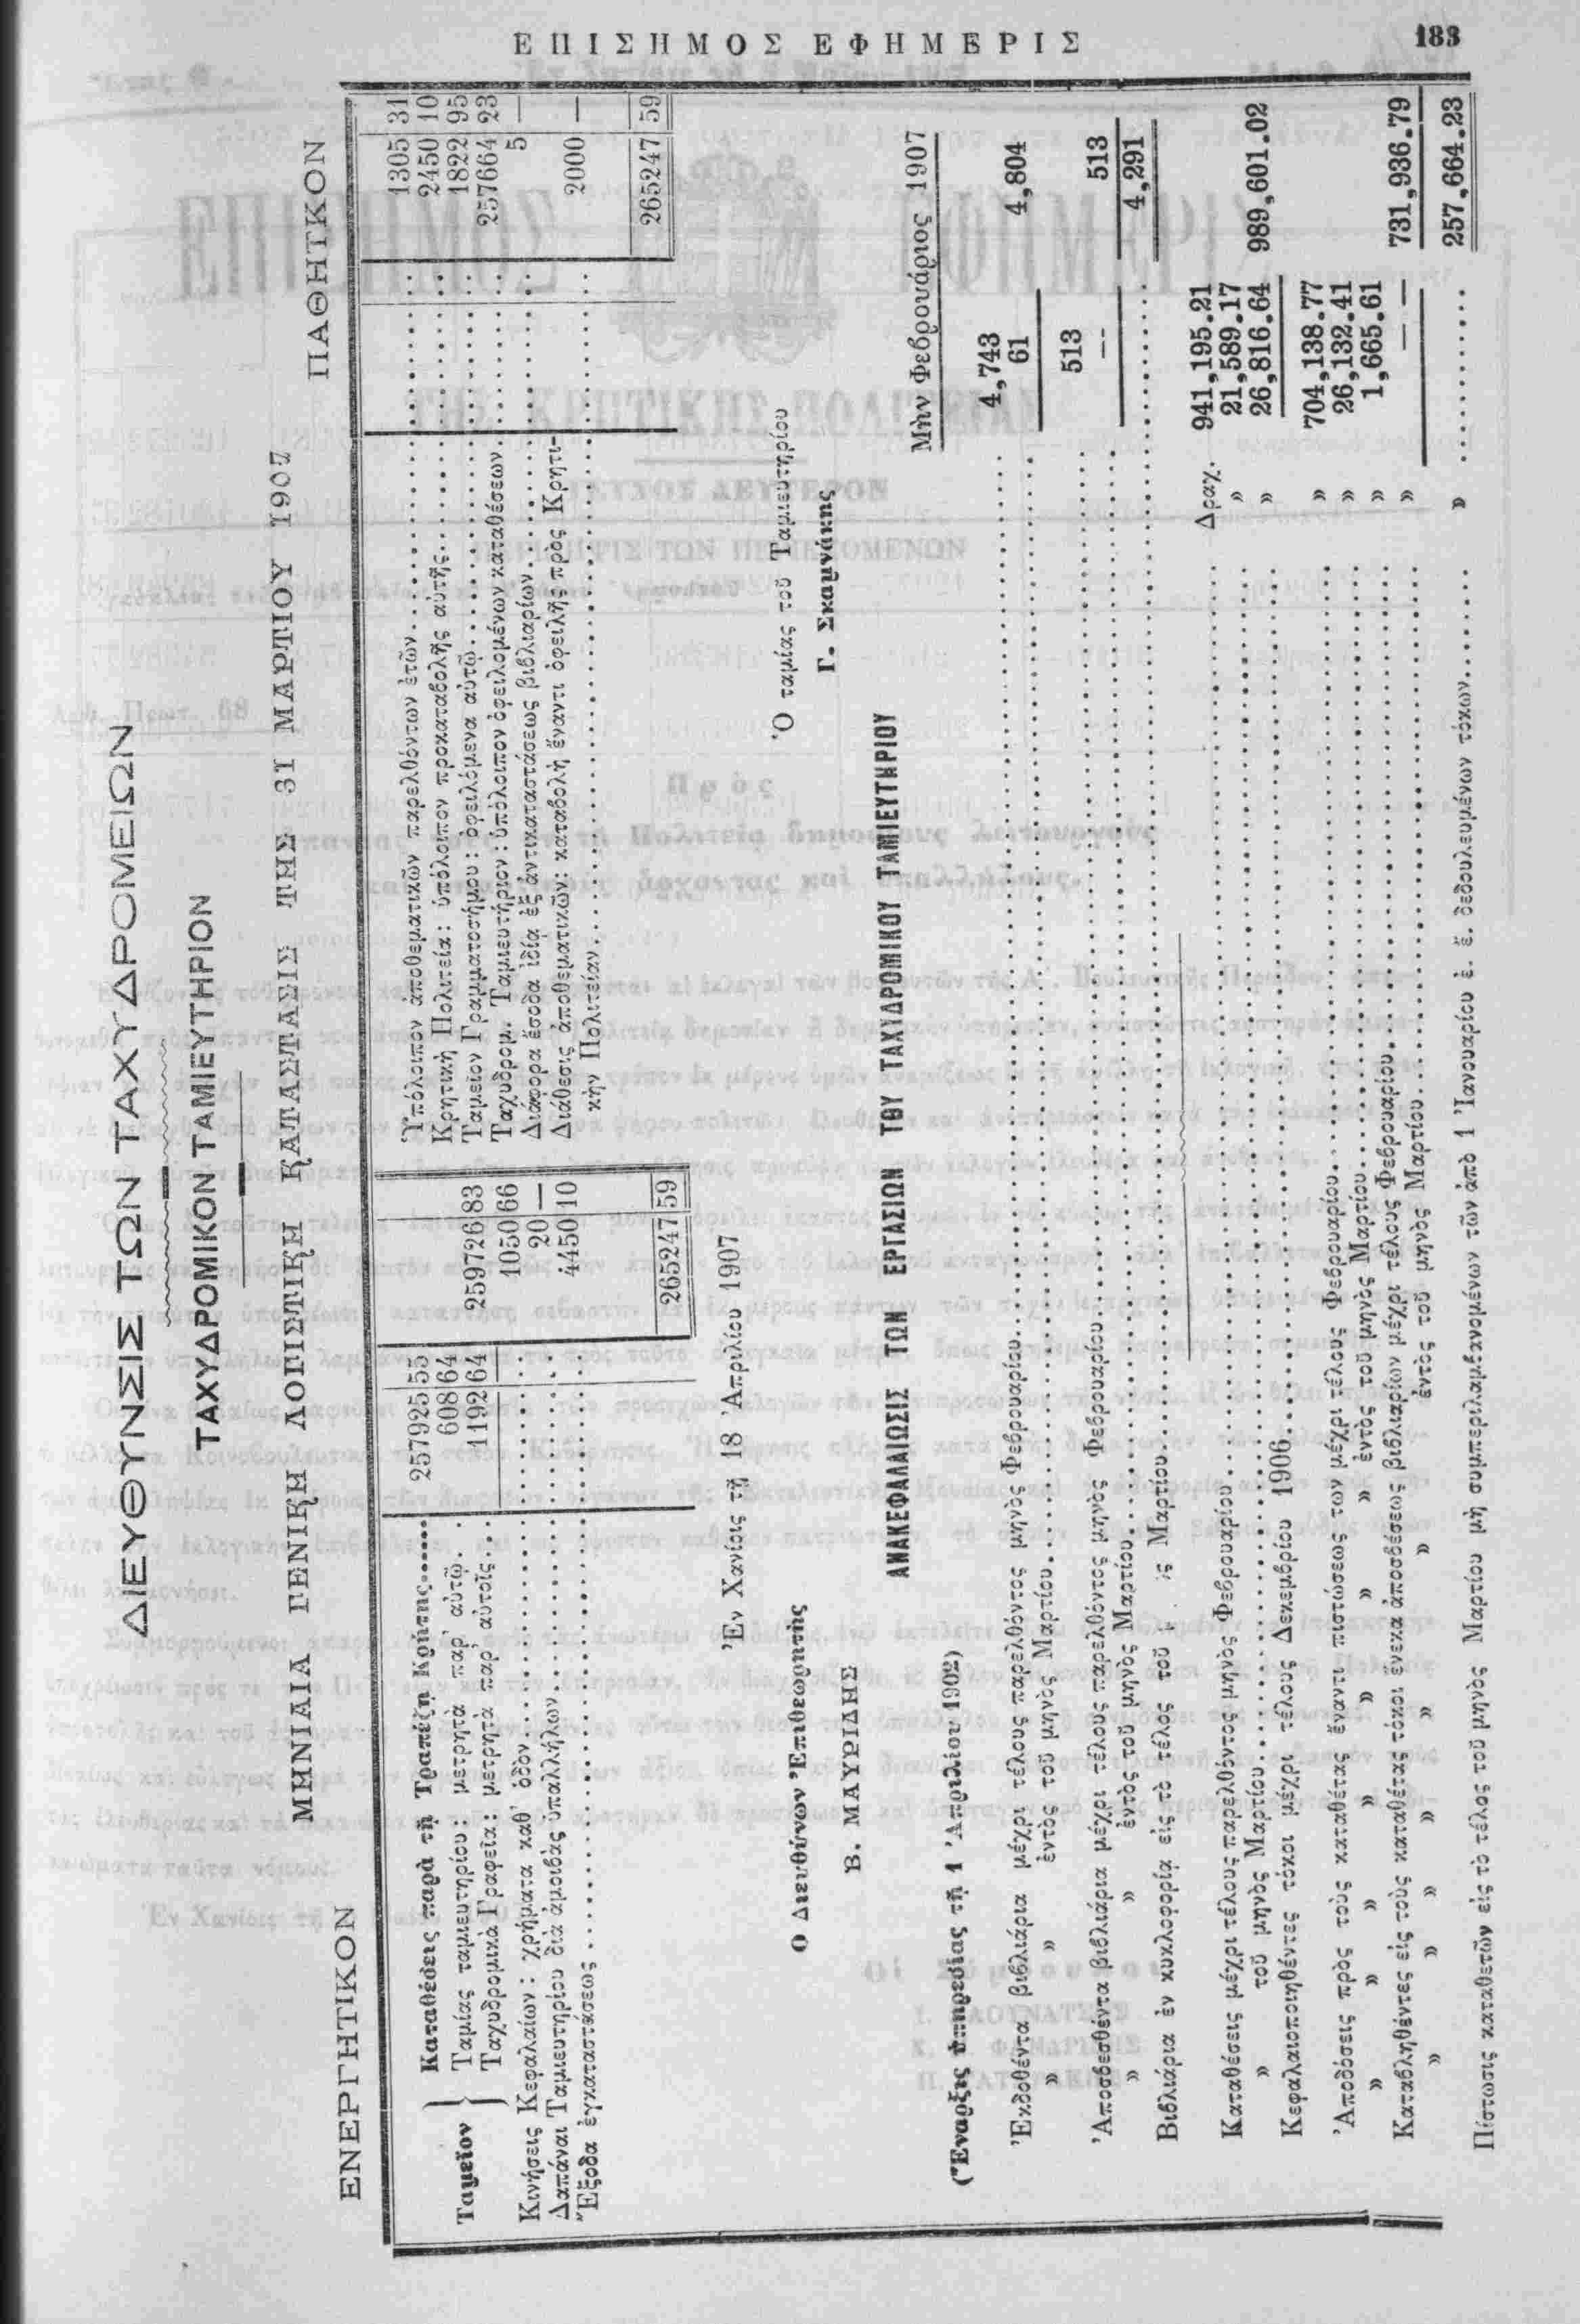 ΕΠΙΣΗΜΟΣ ΕΦΗΜΕΡΙΣ 183
ΔΙΕΥΘΥΝΣΙΣ ΤΩΝ ΤΑΧΥΔΡΟΜΕΙΩΝ
ΤΑΧΥΔΡΟΜΙΚΟΝ ΤΑΜΙΕΥΤΗΡΙΟΝ
ΜΗΝΙΑΙΑ ΓΕΝΙΚΗ ΛΟΓΙΣΤΙΚΗ ΚΑΤΑΣΤΑΣΙΣ ΤΗΣ 31 ΜΑΡΤΙΟΥ 1907
ΕΝΕΡΓΗΤΙΚΟΝ
Ταμεῖον
Καταθέσεις παρὰ τῇ Τραπέζῃ Κρήτης...... 257925 55
Ταμίας ταμιευτηρίου: μετρητὰ παρ' αὐτῷ.. 608 64
Ταχυδρομικὰ Γραφεῖα: μετρητὰ παρ' αὐτοῖς... 1192 64 259726 83
Κινήσεις Κεφαλαίων: χρήματα καθ' ὁδὸν........ 1050 66
Δαπάναι Ταμιευτηρίου διὰ ἀμοιβὰς ὑπαλλήλων........ 20 —
Ἔξοδα ἐγκαταστάσεως........ 4450 10
265247 59
ΠΑΘΗΤΙΚΟΝ
Ὑπόλοιπον ἀποθεματικῶν παρελθόντων ἐτῶν........ 1305 31
Κρητικὴ Πολιτεία: ὑπόλοιπον προκαταβολῆς αὐτῆς........ 2450 10
Ταμεῖον Γραμματοσήμου: ὀφειλόμενα αὐτῷ........ 1822 95
Ταχυδρομ. Ταμιευτήριον: ὑπόλοιπον ὀφειλομένων καταθέσεων.. 257664 23
Διάφορα ἔσοδα ἰδίᾳ ἐξ ἀντικαταστάσεως βιβλιαρίων........ 5 —
Διάθεσις ἀποθεματικῶν: καταβολὴ ἔναντι ὀφειλῆς πρὸς Κρητι-
κὴν Πολιτείαν........ 2000 —
265247 59
Ἐν Χανίοις τῇ 18 Ἀπριλίου 1907
Ο Διευθύνων Ἐπιθεωρητὴς
Β. ΜΑΥΡΙΔΗΣ
Ὁ ταμίας τοῦ Ταμιευτηρίου
Γ. Σκαμνάκης
ΑΝΑΚΕΦΑΛΑΙΩΣΙΣ ΤΩΝ ΕΡΓΑΣΙΩΝ ΤΟΥ ΤΑΧΥΔΡΟΜΙΚΟΥ ΤΑΜΙΕΥΤΗΡΙΟΥ
(Ἔναρξις ὑπηρεσίας τῇ 1 Ἀπριλίου 1902)
Μὴν Φεβρουάριος 1907
Ἐκδοθέντα βιβλιάρια μέχρι τέλους παρελθόντος μηνὸς Φεβρουαρίου........ 4,743
» » ἐντὸς τοῦ μηνὸς Μαρτίου........ 61 4,804
Ἀποσβεσθέντα βιβλιάρια μέχρι τέλους παρελθόντος μηνὸς Φεβρουαρίου........ 513
» » ἐντὸς τοῦ μηνὸς Μαρτίου........ -- 513
Βιβλιάρια ἐν κυκλοφορίᾳ εἰς τὸ τέλος τοῦ ς Μαρτίου........ 4,291
Καταθέσεις μέχρι τέλους παρελθόντος μηνὸς Φεβρουαρίου........ Δραχ. 941,195.21
» τοῦ μηνὸς Μαρτίου........ » 21,589.17
Κεφαλαιοποιηθέντες τόκοι μέχρι τέλους Δεκεμβρίου 1906........ » 26,816.64 989,601.02
Ἀποδόσεις πρὸς τοὺς καταθέτας ἔναντι πιστώσεως των μέχρι τέλους Φεβρουαρίου........ » 704,138.77
» » » » » » ἐντὸς τοῦ μηνὸς Μαρτίου........ » 26,132.41
Καταβληθέντες εἰς τοὺς καταθέτας τόκοι ἕνεκα ἀποσβέσεως βιβλιαρίων μέχρι τέλους Φεβρουαρίου........ » 1,665.61
» » » » » » ἐντὸς τοῦ μηνὸς Μαρτίου........ » — — 731,936.79
Πίστωσις καταθετῶν εἰς τὸ τέλος τοῦ μηνὸς Μαρτίου μὴ συμπεριλαμβανομένων τῶν ἀπὸ 1 Ἰανουαρίου ἐ. ἔ. δεδουλευμένων τόκων........ » ........ 257,664.23